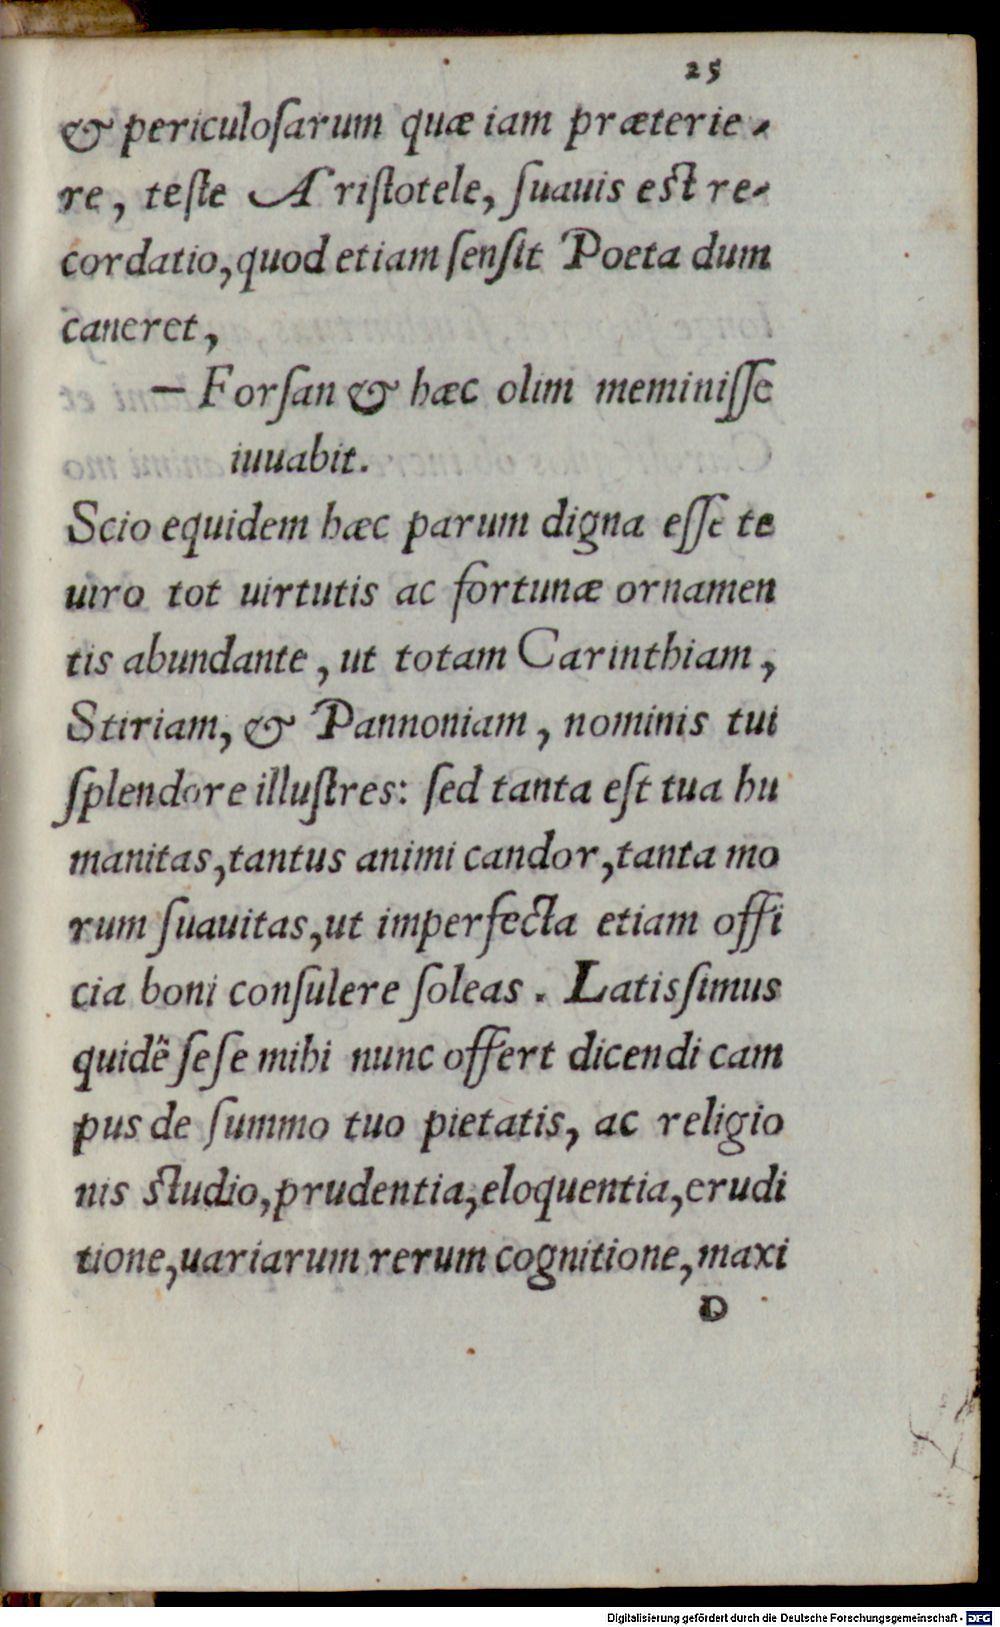 25
& periculoſarum quæ iam præterie-
re, teſte Ariſtotele, ſuauis eſt re-
cordatio, quod etiam ſenſit Poeta dum
caneret,
— Forſan & hæc olim meminiſſe
iuuabit.
Scio equidem hæc parum digna eſſe te
uiro tot uirtutis ac fortunæ ornamen
tis abundante, ut totam Carinthiam,
Stiriam, & Pannoniam, nominis tui
ſplendore illuſtres: ſed tanta eſt tua hu
manitas, tantus animi candor, tanta mo
rum ſuauitas, ut imperfecta etiam offi
cia boni conſulere ſoleas. Latiſſimus
quidē ſeſe mihi nunc offert dicendi cam
pus de ſummo tuo pietatis, ac religio
nis ſtudio, prudentia, eloquentia, erudi
tione, uariarum rerum cognitione, maxi
D
Digitalisierung gefördert durch die Deutsche Forschungsgemeinschaft - DFG